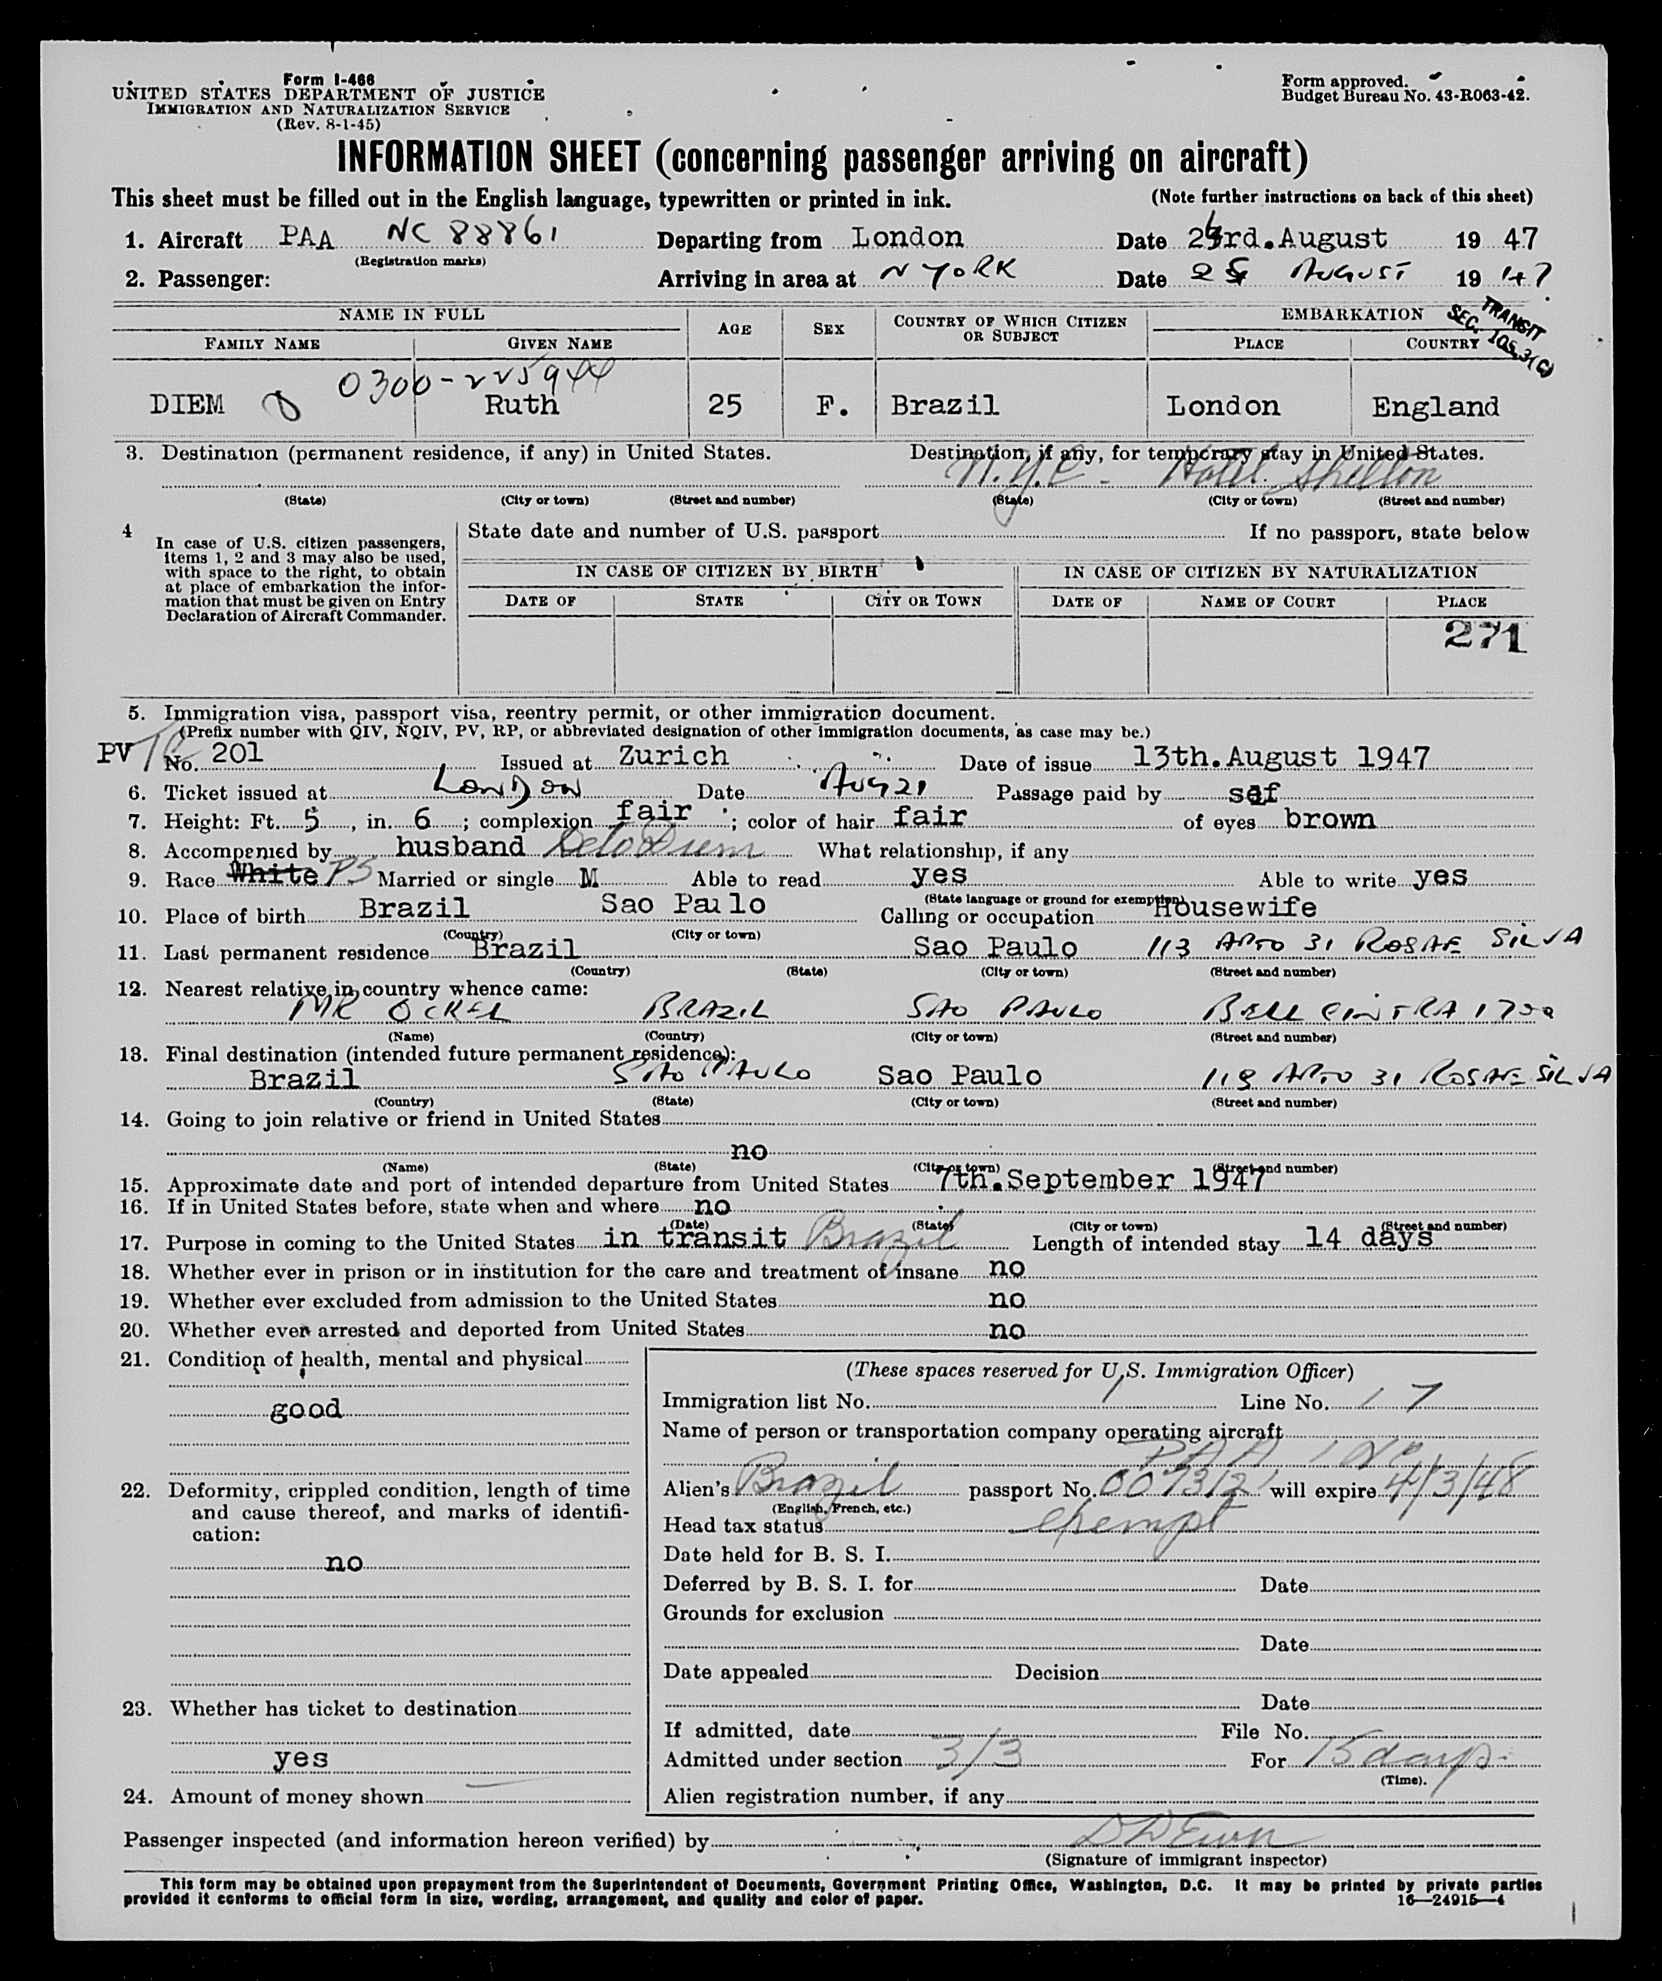 Form I-466
UNITED STATES DEPARTMENT OF JUSTICE
IMMIGRATION AND NATURALIZATION SERVICE
(Rev. 8-1-45)
Form approved.
Budget Bureau No. 43-R063-42.
INFORMATION SHEET (concerning passenger arriving on aircraft)
This sheet must be filled out in the English language, typewritten or printed in ink. (Note further instructions on back of this sheet)
1. Aircraft PAA NC 88861 Departing from London Date 24rd. August 19 47
(Registration marks)
2. Passenger: Arriving in area at N YORK Date 25 AUGUST 19 47
TRANSIT
SEC. 105.3(C)
NAME IN FULL AGE SEX COUNTRY OF WHICH CITIZEN OR SUBJECT EMBARKATION
FAMILY NAME GIVEN NAME PLACE COUNTRY
0300-225944
DIEM Ruth 25 F. Brazil London England
3. Destination (permanent residence, if any) in United States. Destination, if any, for temporary stay in United States.
N.Y.C - Hotel Shelton
(State) (City or town) (Street and number) (State) (City or town) (Street and number)
4 In case of U.S. citizen passengers, items 1, 2 and 3 may also be used, with space to the right, to obtain at place of embarkation the information that must be given on Entry Declaration of Aircraft Commander.
State date and number of U.S. passport If no passport, state below
IN CASE OF CITIZEN BY BIRTH IN CASE OF CITIZEN BY NATURALIZATION
DATE OF STATE CITY OR TOWN DATE OF NAME OF COURT PLACE
271
5. Immigration visa, passport visa, reentry permit, or other immigration document.
(Prefix number with QIV, NQIV, PV, RP, or abbreviated designation of other immigration documents, as case may be.)
PV No. 201 Issued at Zurich Date of issue 13th. August 1947
6. Ticket issued at LONDON Date AUG 21 Passage paid by
7. Height: Ft. 5, in. 6; complexion fair; color of hair fair of eyes brown
8. Accompenied by husband Diem What relationship, if any
9. Race White PS Married or single M Able to read yes Able to write yes
(State language or ground for exemption)
10. Place of birth Brazil Sao Paulo Calling or occupation Housewife
(Country) (City or town)
11. Last permanent residence Brazil Sao Paulo 113 APTO 31 ROSAE SILVA
(Country) (State) (City or town) (Street and number)
12. Nearest relative in country whence came:
MR OCKEL BRAZIL SAO PAULO BELL CINTRA
(Name) (Country) (City or town) (Street and number)
13. Final destination (intended future permanent residence):
Brazil SAO PAULO Sao Paulo 118 APTO 31 ROSAE SILVA
(Country) (State) (City or town) (Street and number)
14. Going to join relative or friend in United States
no
(Name) (State) (City or town) (Street and number)
15. Approximate date and port of intended departure from United States 7th. September 1947
16. If in United States before, state when and where no
(Date) (State) (City or town) (Street and number)
17. Purpose in coming to the United States in transit Brazil Length of intended stay 14 days
18. Whether ever in prison or in institution for the care and treatment of insane no
19. Whether ever excluded from admission to the United States no
20. Whether ever arrested and deported from United States no
21. Condition of health, mental and physical
good
22. Deformity, crippled condition, length of time
and cause thereof, and marks of identifi-
cation:
no
23. Whether has ticket to destination
yes
24. Amount of money shown
(These spaces reserved for U.S. Immigration Officer)
Immigration list No. 1 Line No. 17
Name of person or transportation company operating aircraft
PAA INC
Alien's Brazil passport No. 007312 will expire 4/3/48
(English, French, etc.)
Head tax status exempt
Date held for B. S. I.
Deferred by B. S. I. for Date
Grounds for exclusion
Date
Date appealed Decision
Date
If admitted, date File No.
Admitted under section 3/3 For 15 days
(Time).
Alien registration number, if any
Passenger inspected (and information hereon verified) by
(Signature of immigrant inspector)
This form may be obtained upon prepayment from the Superintendent of Documents, Government Printing Office, Washington, D.C. It may be printed by private parties
provided it conforms to official form in size, wording, arrangement, and quality and color of paper. 16—24915—4